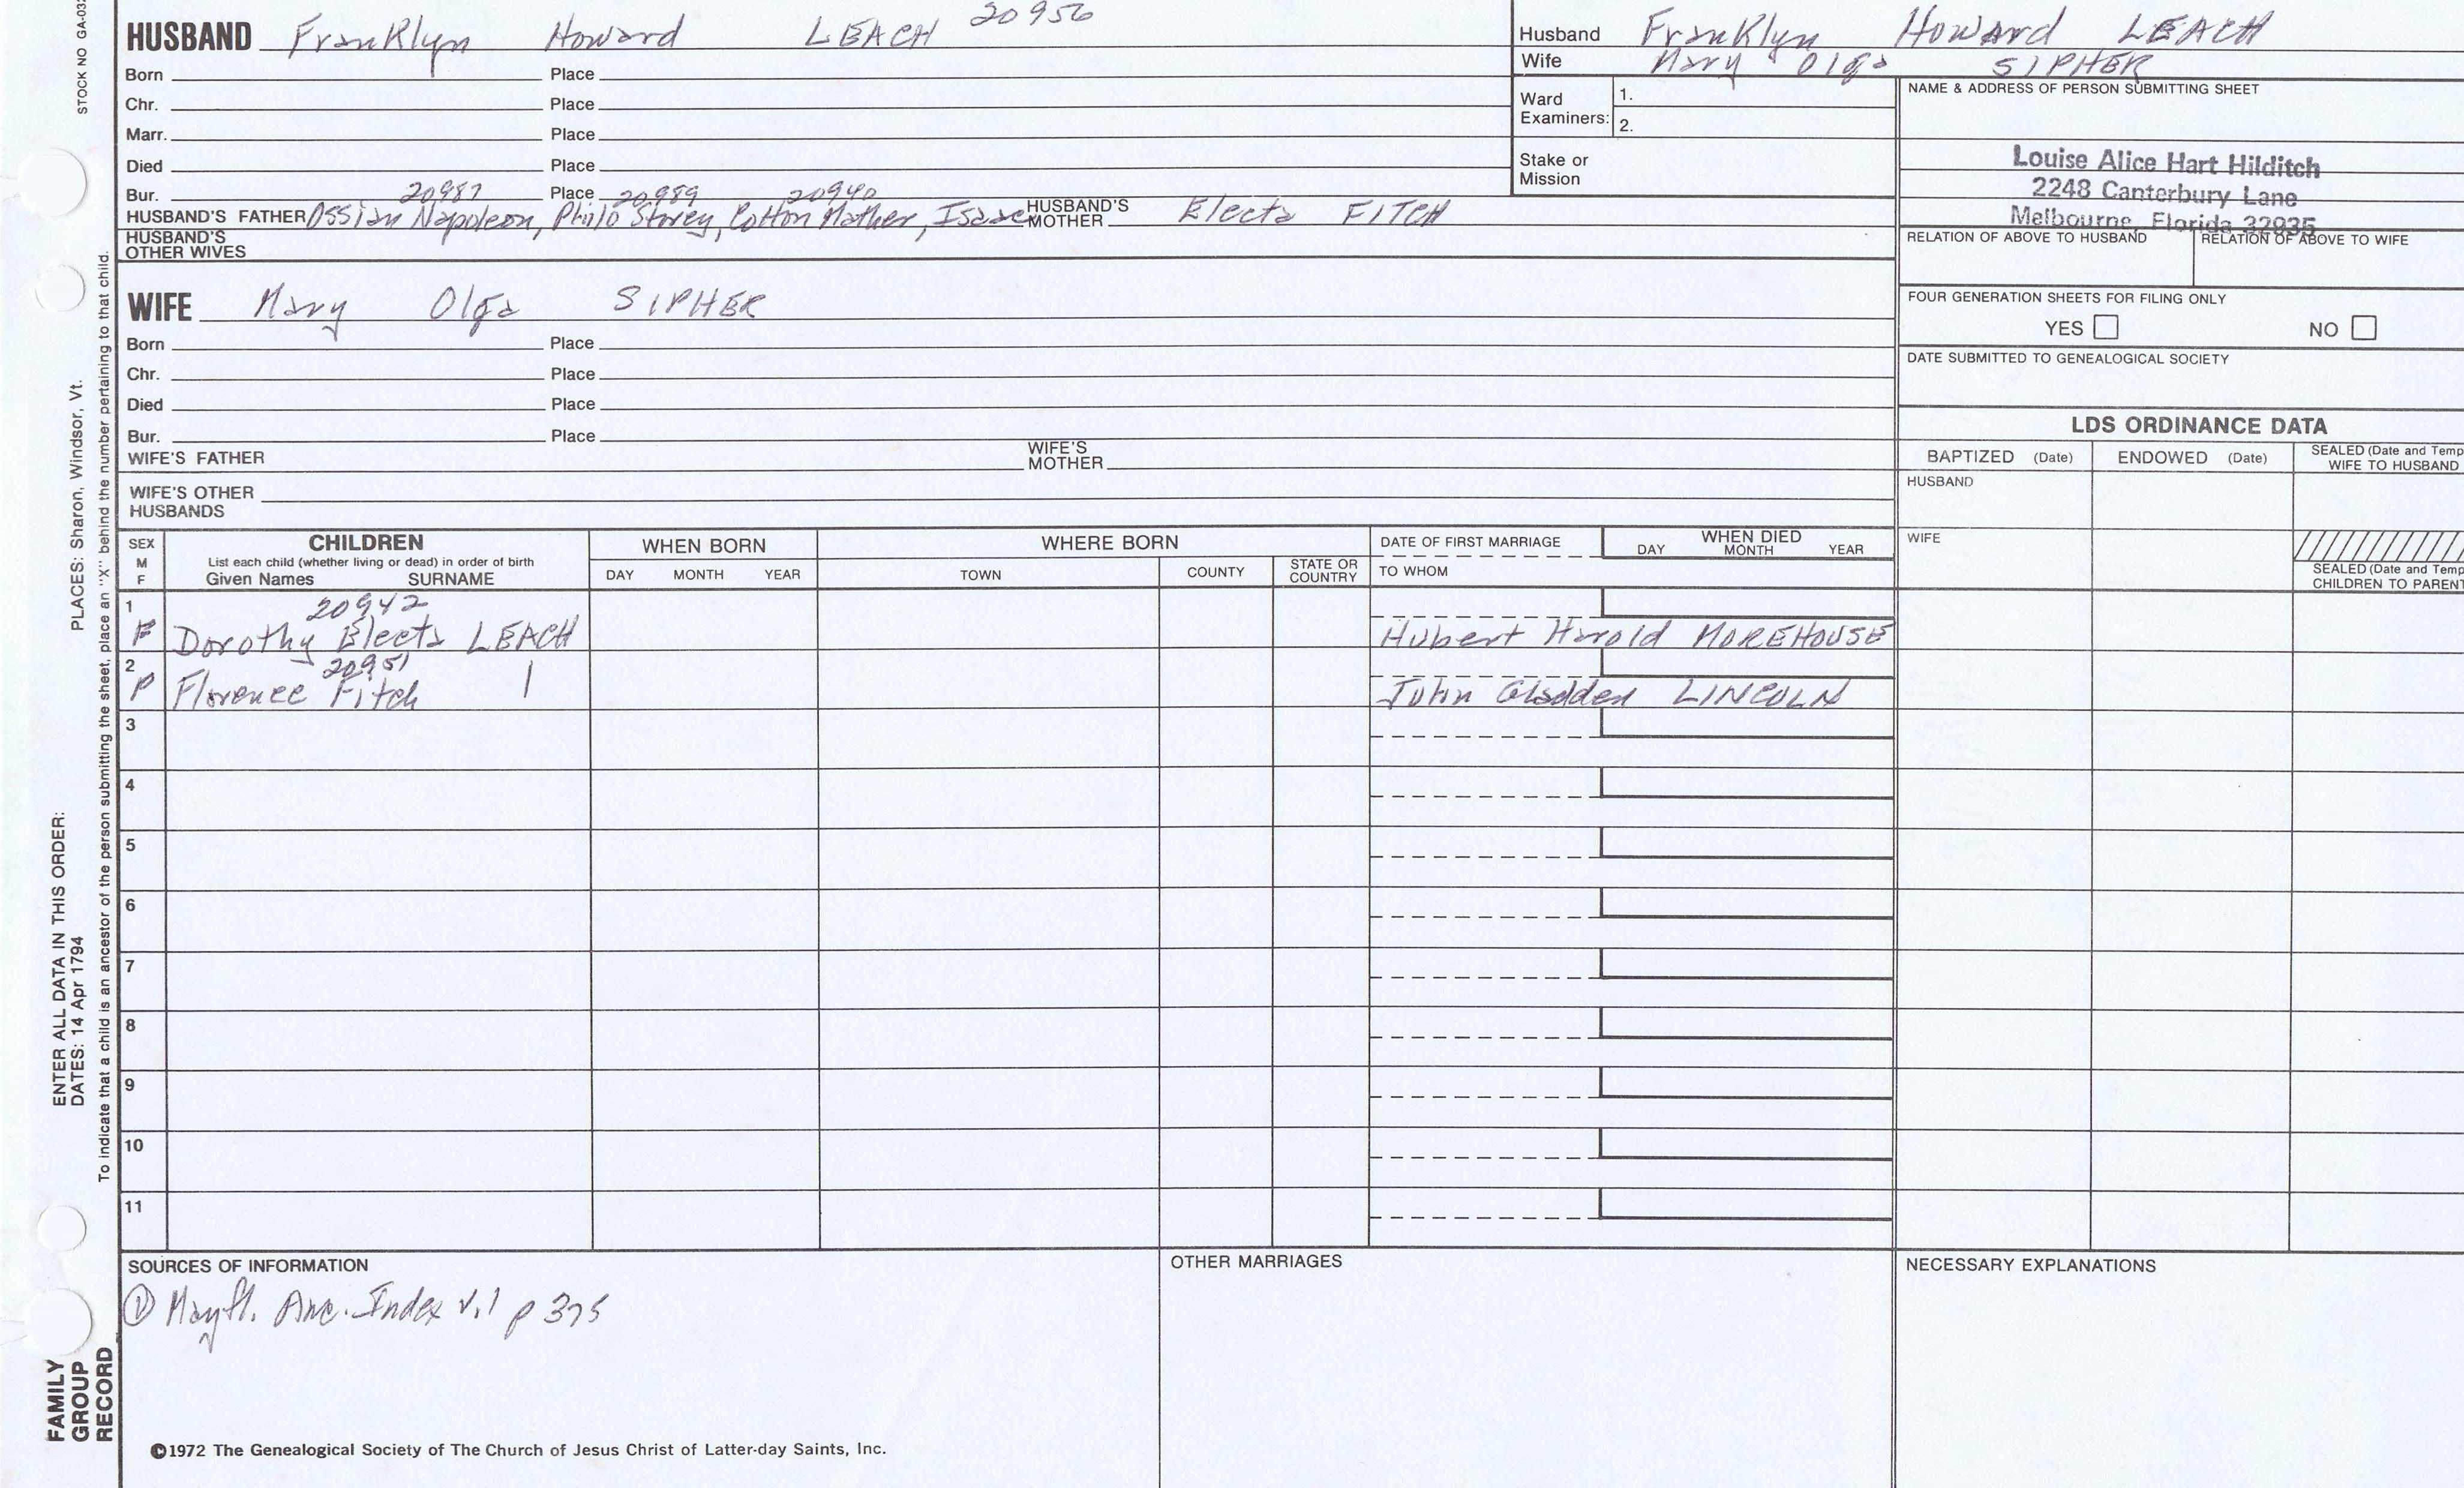 STOCK NO GA-032
HUSBAND Franklyn Howard LEACH 20956
Born Place
Chr. Place
Marr. Place
Died Place
Bur. Place
20987 20989 20940
HUSBAND'S FATHER Ossian Napoleon, Philo Storey, Cotton Mather, Isaac HUSBAND'S MOTHER Electa FITCH
HUSBAND'S OTHER WIVES
WIFE Mary Olga SIPHER
Born Place
Chr. Place
Died Place
Bur. Place
WIFE'S FATHER WIFE'S MOTHER
WIFE'S OTHER HUSBANDS
Husband Franklyn Howard LEACH
Wife Mary Olga SIPHER
Ward Examiners: 1.
2.
Stake or Mission
NAME & ADDRESS OF PERSON SUBMITTING SHEET
Louise Alice Hart Hilditch
2248 Canterbury Lane
Melbourne, Florida 32935
RELATION OF ABOVE TO HUSBAND RELATION OF ABOVE TO WIFE
FOUR GENERATION SHEETS FOR FILING ONLY
YES NO
DATE SUBMITTED TO GENEALOGICAL SOCIETY
LDS ORDINANCE DATA
BAPTIZED (Date) ENDOWED (Date) SEALED (Date and Temp
WIFE TO HUSBAND
HUSBAND
WIFE
SEALED (Date and Temp
CHILDREN TO PARENT
SEX M F
CHILDREN
List each child (whether living or dead) in order of birth
Given Names SURNAME
WHEN BORN
DAY MONTH YEAR
WHERE BORN
TOWN COUNTY STATE OR COUNTRY
DATE OF FIRST MARRIAGE
TO WHOM
WHEN DIED
DAY MONTH YEAR
1 20942
F Dorothy Electa LEACH Hubert Harold MOREHOUSE
2 20951
F Florence Fitch | John Gladden LINCOLN
3
4
5
6
7
8
9
10
11
SOURCES OF INFORMATION
① Mayfl. Anc. Index v.1 p 375
OTHER MARRIAGES
NECESSARY EXPLANATIONS
©1972 The Genealogical Society of The Church of Jesus Christ of Latter-day Saints, Inc.
FAMILY
GROUP
RECORD
ENTER ALL DATA IN THIS ORDER:
DATES: 14 Apr 1794 PLACES: Sharon, Windsor, Vt.
To indicate that a child is an ancestor of the person submitting the sheet, place an "X" behind the number pertaining to that child.